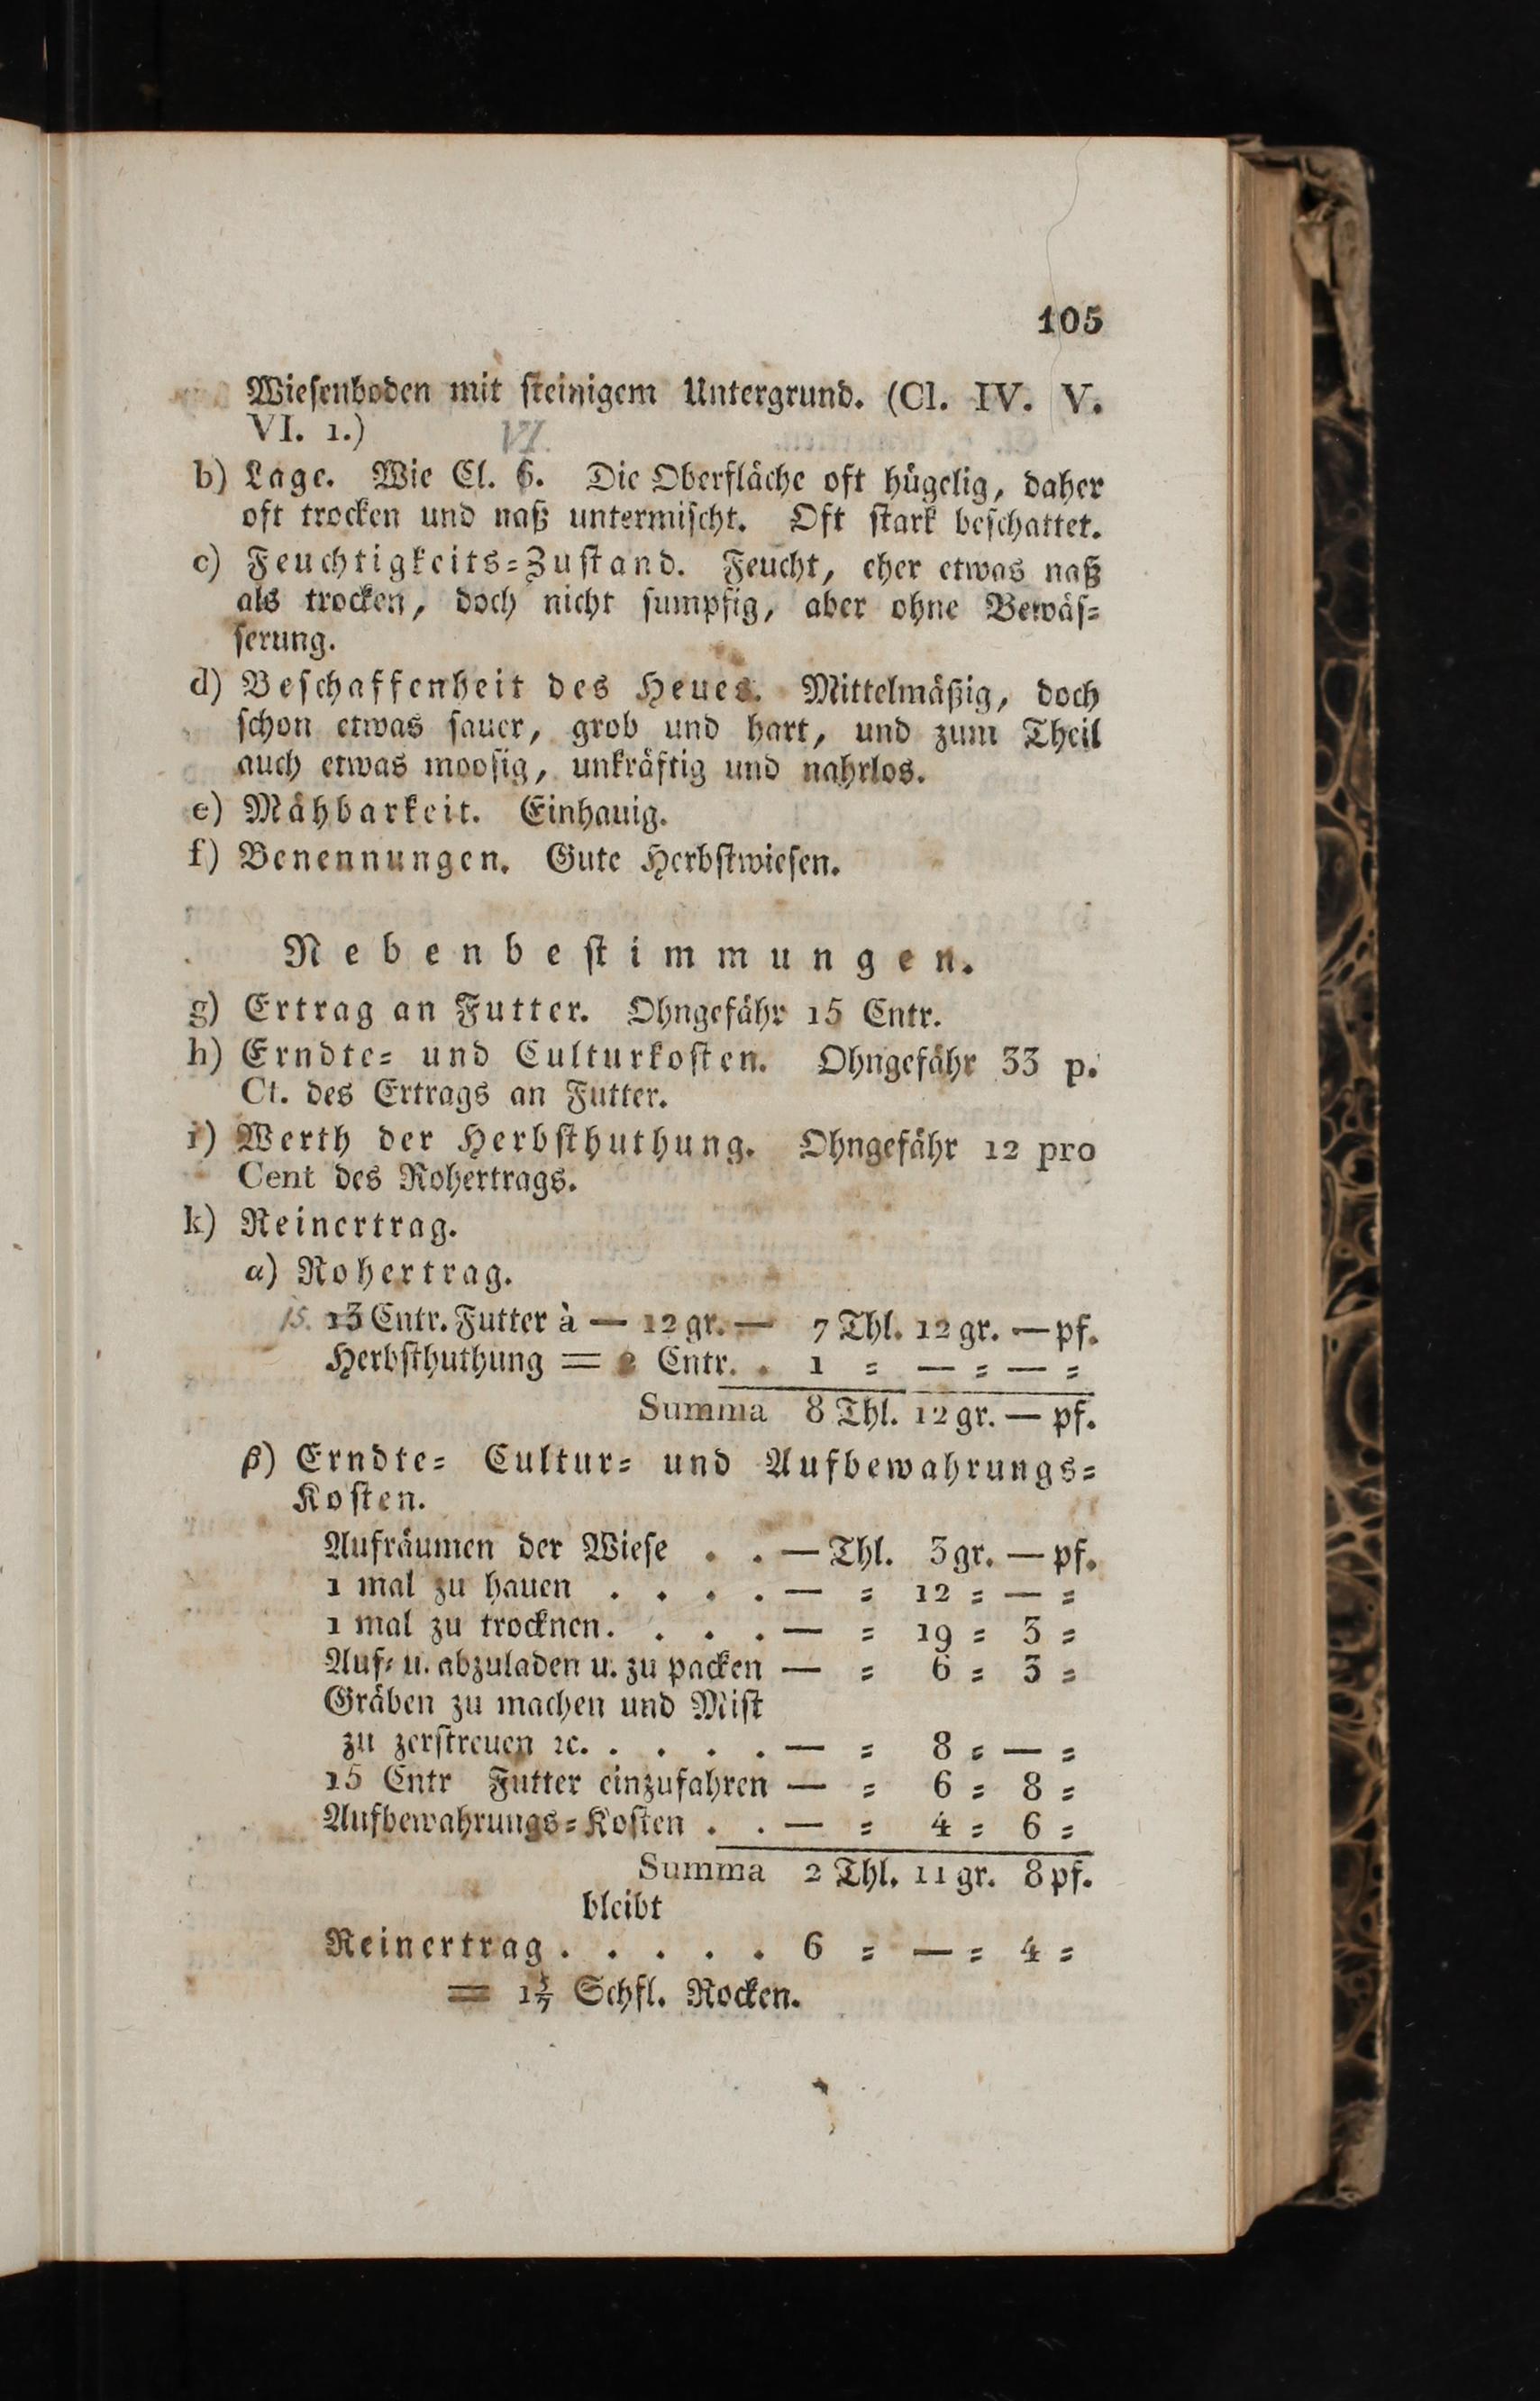 105
Wiesenboden mit steinigem Untergrund. (Cl. IV. V.
VI. 1.)
VI.
b) Lage. Wie Cl. 6. Die Oberfläche oft hügelig, daher
oft trocken und naß untermischt. Oft stark beschattet.
c) Feuchtigkeits-Zustand. Feucht, eher etwas naß
als trocken, doch nicht sumpfig, aber ohne Bewäs-
serung.
d) Beschaffenheit des Heues. Mittelmäßig, doch
schon etwas sauer, grob und hart, und zum Theil
auch etwas moosig, unkräftig und nahrlos.
e) Mähbarkeit. Einhauig.
f) Benennungen. Gute Herbstwiesen.
Nebenbestimmungen.
g) Ertrag an Futter. Ohngefähr 15 Cntr.
h) Erndte- und Culturkosten. Ohngefähr 33 p.
Ct. des Ertrags an Futter.
i) Werth der Herbsthuthung. Ohngefähr 12 pro
Cent des Rohertrags.
k) Reinertrag.
α) Rohertrag.
15. 13 Cntr. Futter à — 12 gr. — 7 Thl. 12 gr. — pf.
Herbsthuthung = 2 Cntr. . 1 = — = — =
Summa 8 Thl. 12 gr. — pf.
β) Erndte- Cultur- und Aufbewahrungs-
Kosten.
Aufräumen der Wiese . . — Thl. 3 gr. — pf.
1 mal zu hauen . . . . — = 12 = — =
1 mal zu trocknen. . . . — = 19 = 3 =
Auf- u. abzuladen u. zu packen — = 6 = 3 =
Gräben zu machen und Mist
zu zerstreuen ꝛc. . . . . — = 8 = — =
15 Cntr Futter einzufahren — = 6 = 8 =
Aufbewahrungs-Kosten . . — = 4 = 6 =
Summa 2 Thl. 11 gr. 8 pf.
bleibt
Reinertrag . . . . . 6 = — = 4 =
= 1 3/7 Schfl. Rocken.